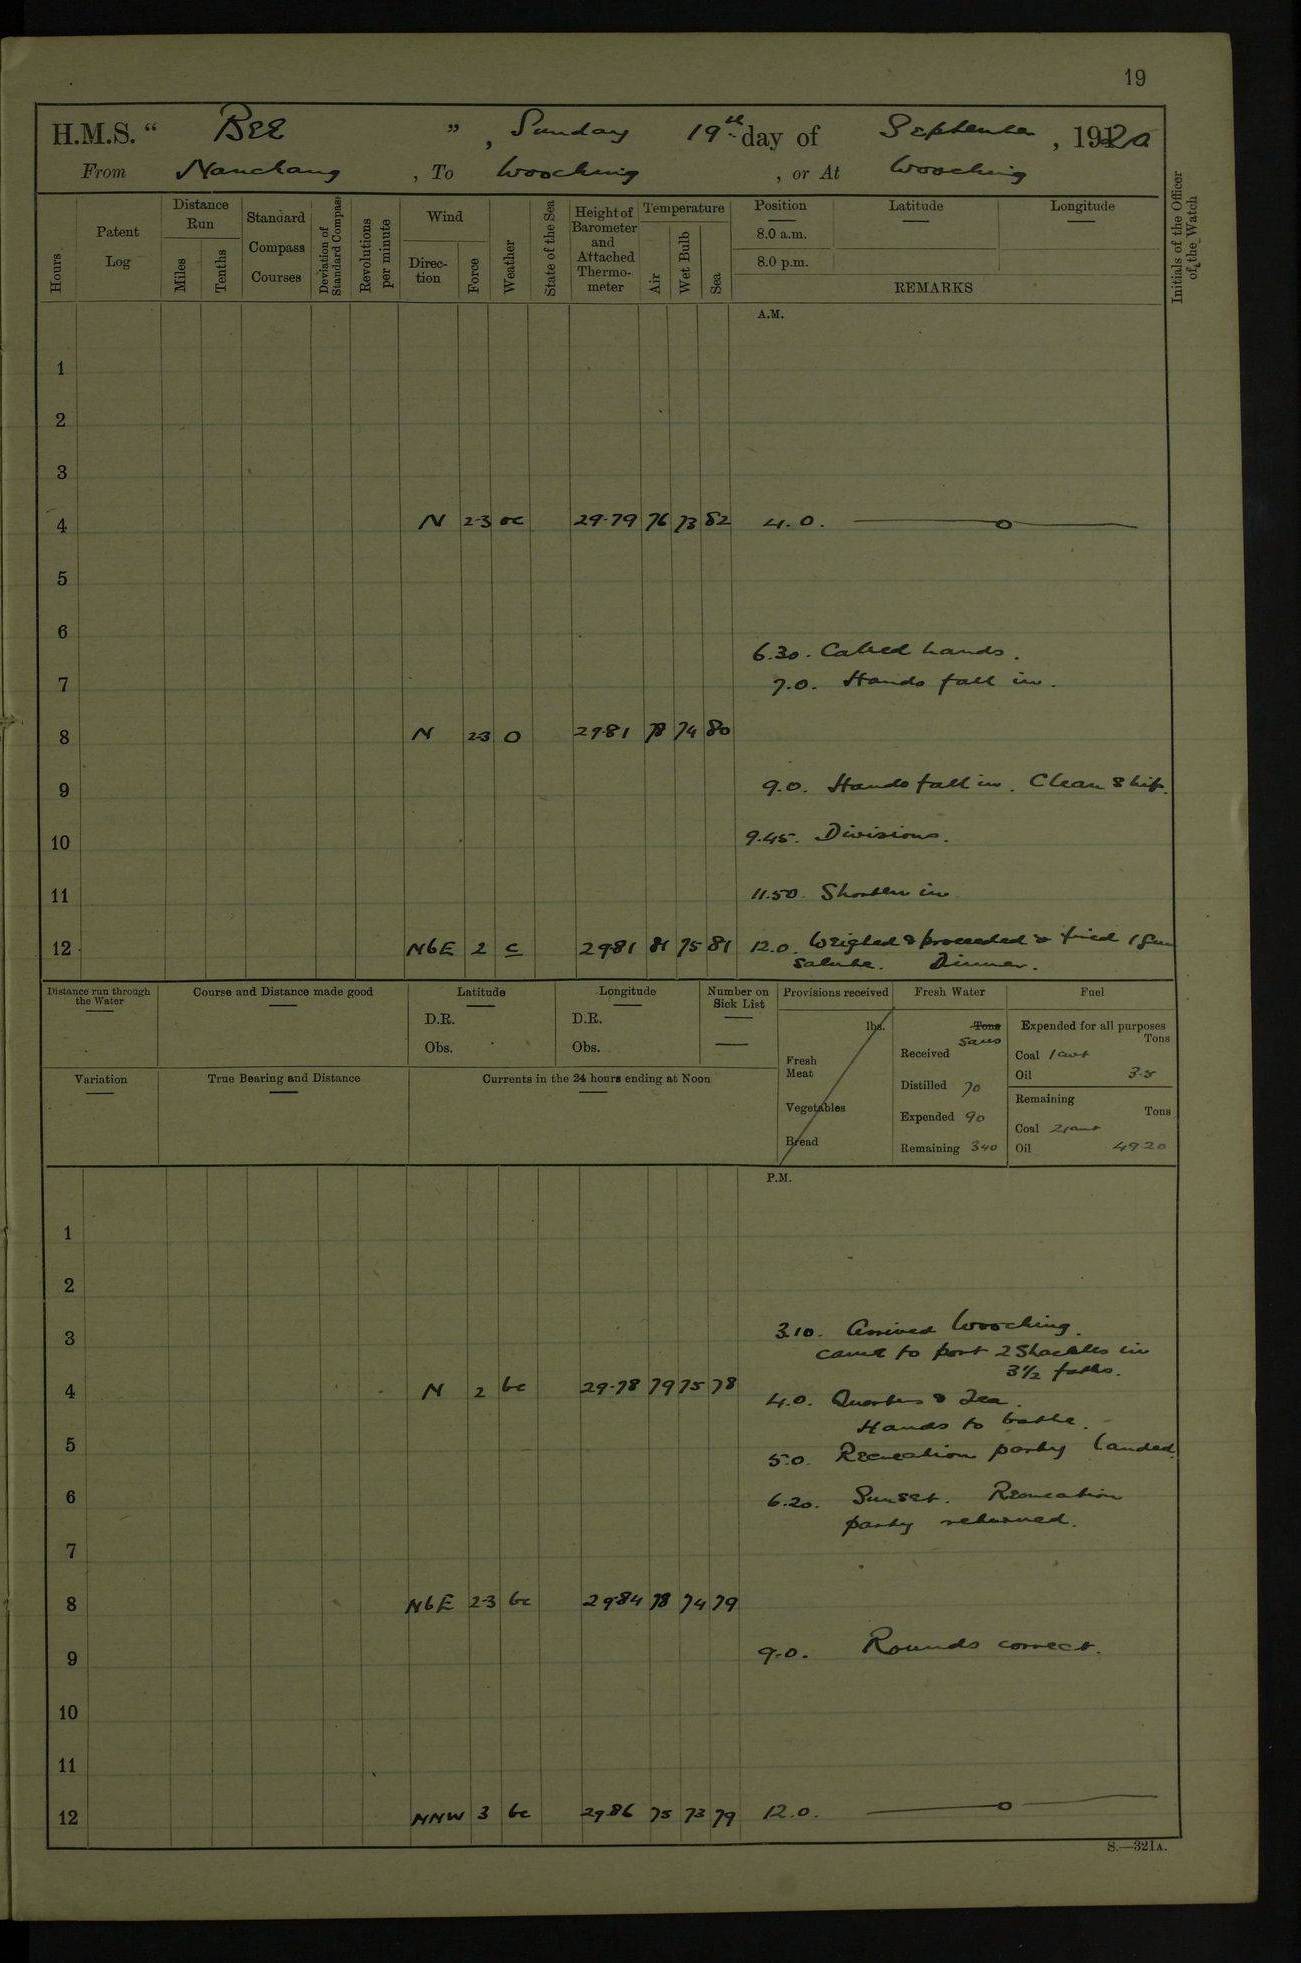 19
H.M.S. “ Bee ” , Sunday 19th day of September , 1920
From Nanchang , To Wooching , or At Wooching
Hours
Patent Log
Distance Run
Miles
Tenths
Standard Compass Courses
Deviation of Standard Compass
Revolutions per minute
Wind
Direc- tion
Force
Weather
State of the Sea
Height of Barometer and Attached Thermo- meter
Temperature
Air
Wet Bulb
Sea
Position
8.0 a.m.
8.0 p.m.
Latitude
Longitude
REMARKS
Initials of the Officer of the Watch
A.M.
1
2
3
4 N 2-3 oc 29.79 76 73 82 4.0.
5
6
6.30. Called hands.
7 7.0. Hands fall in.
8 N 2-3 O 29.81 78 74 80
9 9.0. Hands fall in. Clean Ship.
10 9.45. Divisions.
11 11.50. Shorten in
12 NbE 2 c 29.81 81 75 81 12.0. Weighed & proceeded & fired 1 Gun
Salute. Dinner.
Distance run through the Water
Course and Distance made good
Latitude
D.R.
Obs.
Longitude
D.R.
Obs.
Number on Sick List
Provisions received
lbs.
Fresh Meat
Vegetables
Bread
Fresh Water
Tons
Received
Distilled 70
Expended 90
Remaining 340
Fuel
Expended for all purposes
Tons
Coal 1 cwt
Oil 3.5
Remaining
Tons
Coal
Oil 49.20
Variation
True Bearing and Distance
Currents in the 24 hours ending at Noon
P.M.
1
2
3 3.10. Arrived Wooching.
Came to port 2 Shackles in
3½ faths.
4 N 2 bc 29.78 79 75 78 4.0. Quarters & Tea.
Hands to bathe.
5 5.0. Recreation party landed.
6 6.20. Sunset. Recreation
party returned.
7
8 NbE 2-3 bc 29.84 78 74 79
9 9.0. Rounds correct.
10
11
12 NNW 3 bc 29.86 75 73 79 12.0.
S.—321A.